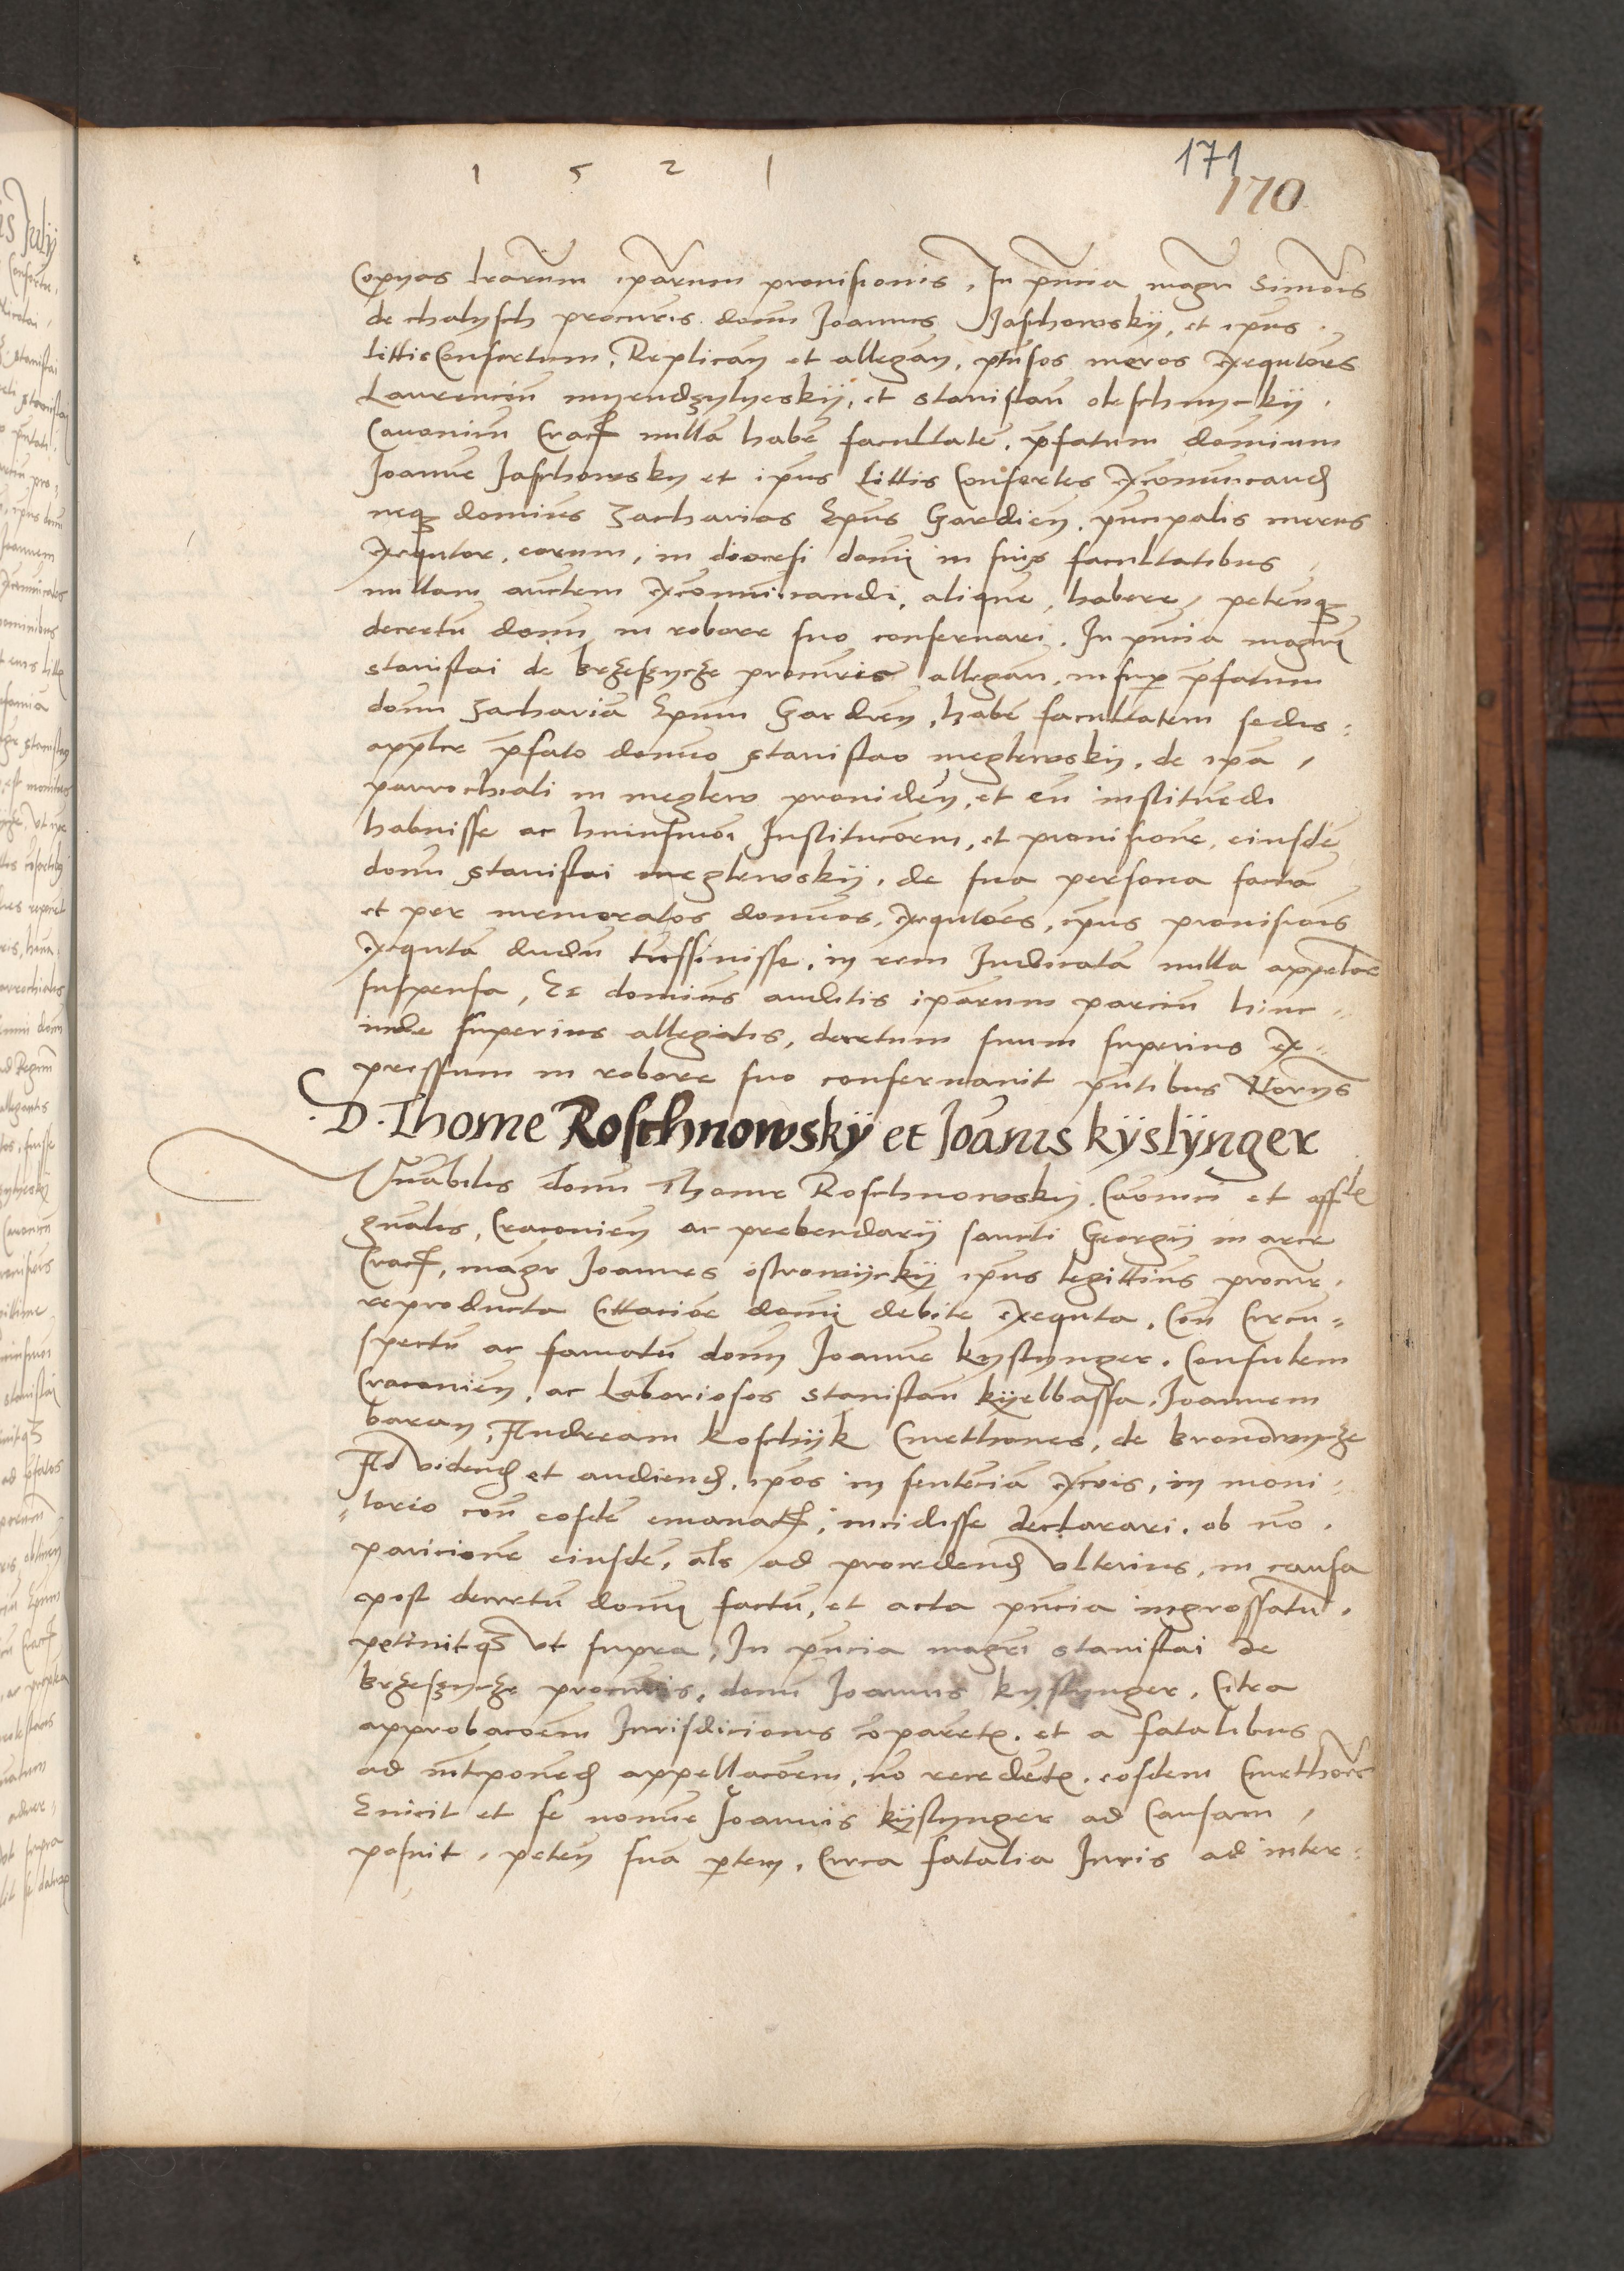 1 5 2 1
171
170
Copyas lrarum ipārum prouisionis, In pn̄cia magri Simōis
de chalysch procuris. domi Joannis Jaschowskÿ, et ipius
littis Consortum, Replicān et allegān, ptn̄sos meros exequtōres
Laurenciu myendzylyeskÿ, et stanislau oleschnycky
Canonicu Crac nullā habē facultatē, p̄fatum dominum
Joannē Jaschowsky et ipius littis Consortes excomunicand
neq dominus Zacharias Epus Gardien, principalis merus
exequtor, eorum, in diocesi domi in suis facultatibus
nullam auctem excommunicandi, aliquē, habere, petensq
decretu domi in robore suo conseruari. In pn̄cia magri
stanislai de brzeszycze procuris allegān, insup p̄fatum
domi Zachariā Epum Gardien, habē facultatem sedis
aplice p̄fato domino stanislao meglewskÿ, de ipa
parrochiali in meglew prouiden, et eu instituēdi
habuisse ac huiusmoi Institucōem, et prouisionē, eiusdē
domi stanislai meglewskÿ, de sua persona factā
et per memoratos dominos, exequtōes, ipius prouisiōis
exequtā dudu transiuisse, in rem Iudicatā nulla appelatōe
suspensa, Et dominus auditis ipārum parciu hinc
inde superius allegatis, decretum suum superius ex-
pressum in robore suo conseruauit pn̄tibus Notarÿs
D. Thome Roschnowskÿ et Joānis kÿslÿnger
Vn̄abilis domi Thome Roschnowskÿ, Canonici et offlis
gn̄alis, Cracouien ac prebendarÿ sancti Georgÿ in arce
Crac, magr Joannes ostrowÿckÿ ipius legittimus procur.
reproducta Cittaciōe domi debite exequta, Con Circu-
spectu ac famatu domi Joannē kyslynger, Consulem
Cracouien, ac Laboriosos stanislau kÿelbassa, Joannem
baran, Andream koschÿk Cmethones, de bronowycze
Ad vidend et audiend, ipos in sentēciā excōis, in moni-
torio con eosdē emanat, incidisse declarari, ob no
paricionē eiusdē, als ad procedend vlterius, in causa
post decretu domi factu, et acta pn̄cia ingrossatu,
petiuitq vt supra, In pn̄cia magri stanislai de
brzeszycze procuris, domi Joannis kyslynger, Citra
approbacōem Iurisdicionis comparēte, et a fatalibus
ad int̄ponēd appellacōem, no recedēte, eosdem Cmethones
Euicit et se nomīe Joannis kÿslynger ad Causam
posuit, peten sua ptem, Circa fatalia Iuris ad inter-